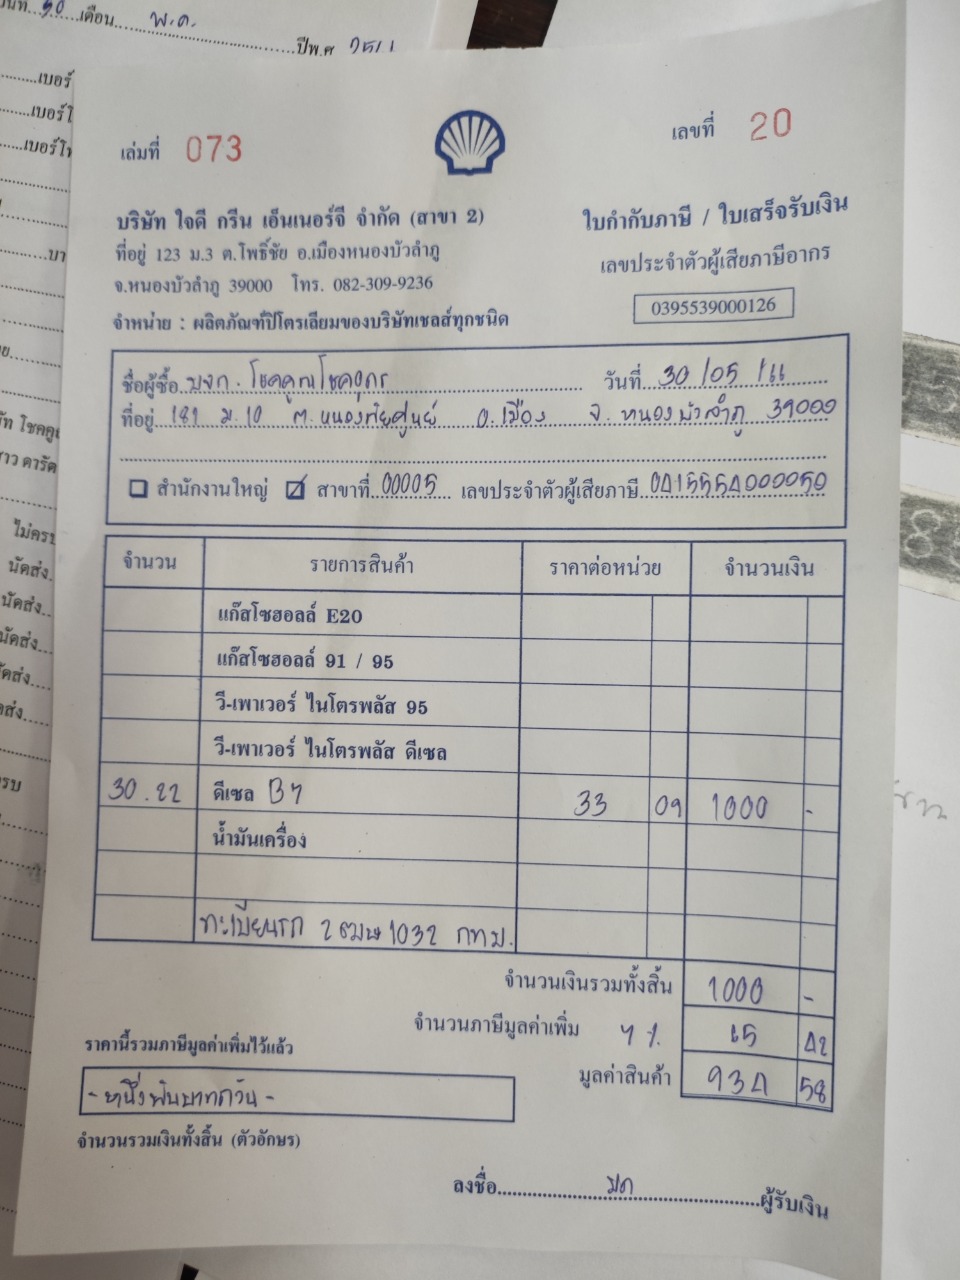 เดือน พ.ค. ปีพ.ศ
เบอร์
เบอร์โ
เบอร์โท
เล่มที่ 073
เลขที่ 20
บริษัท ใจดี กรีน เอ็นเนอร์จี จำกัด (สาขา 2)
ใบกำกับภาษี / ใบเสร็จรับเงิน
ที่อยู่ 123 ม.3 ต.โพธิ์ชัย อ.เมืองหนองบัวลำภู
เลขประจำตัวผู้เสียภาษีอากร
จ.หนองบัวลำภู 39000 โทร. 082-309-9236
0395539000126
จำหน่าย : ผลิตภัณฑ์ปิโตรเลียมของบริษัทเชลล์ทุกชนิด
ชื่อผู้ซื้อ บจก. โชคคูณโชคอุดร วันที่ 30/05/66
ที่อยู่ 181 ม.10 ต.หนองภัยศูนย์ อ.เมือง จ.หนองบัวลำภู 39000
สำนักงานใหญ่ สาขาที่ 00005 เลขประจำตัวผู้เสียภาษี 0415554000050
จำนวน รายการสินค้า ราคาต่อหน่วย จำนวนเงิน
แก๊สโซฮอลล์ E20
แก๊สโซฮอลล์ 91 / 95
วี-เพาเวอร์ ไนโตรพลัส 95
วี-เพาเวอร์ ไนโตรพลัส ดีเซล
30.22 ดีเซล B7 33 09 1000 -
น้ำมันเครื่อง
ทะเบียนรถ 2ฒษ1032 กทม.
จำนวนเงินรวมทั้งสิ้น 1000 -
จำนวนภาษีมูลค่าเพิ่ม 7% 65 42
ราคานี้รวมภาษีมูลค่าเพิ่มไว้แล้ว
มูลค่าสินค้า 934 58
-หนึ่งพันบาทถ้วน-
จำนวนรวมเงินทั้งสิ้น (ตัวอักษร)
ลงชื่อ มด ผู้รับเงิน
ไม่ครบ
นัดส่ง
นัดส่ง
นัดส่ง